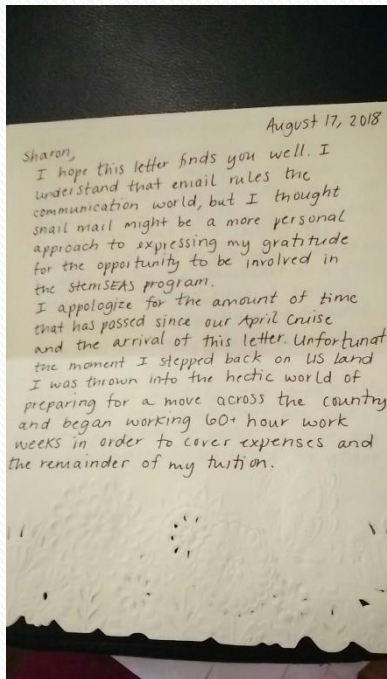 August 17, 2018
Sharon,
I hope this letter finds you well. I
understand that email rules the
communication world, but I thought
snail mail might be a more personal
approach to expressing my gratitude
for the opportunity to be involved in
the StemSEAS program.
I apologize for the amount of time
that has passed since our April Cruise
and the arrival of this letter. Unfortunat
the moment I stepped back on US land
I was thrown into the hectic world of
preparing for a move across the country
and began working 60+ hour work
weeks in order to cover expenses and
the remainder of my tuition.